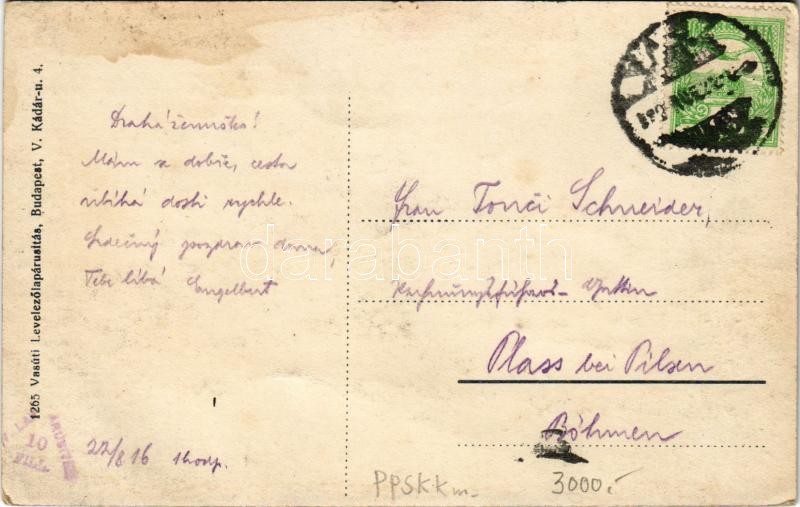 1265 Vasúti Levelezőlapárusitás, Budapest, V. Kádár-u. 4.
Drahá ženuško!
Mám se dobře, cesta
ubíhá dosti rychle.
Srdečný pozdrav doma,
Tebe líbá Engelbert
22/8 16 1 hodp.
Frau Tonči Schneider,
Rechnungsführers-Gattin
Plass bei Pilsen
Böhmen
PPSKKm-
3000.-
10
FILL.
darabanth